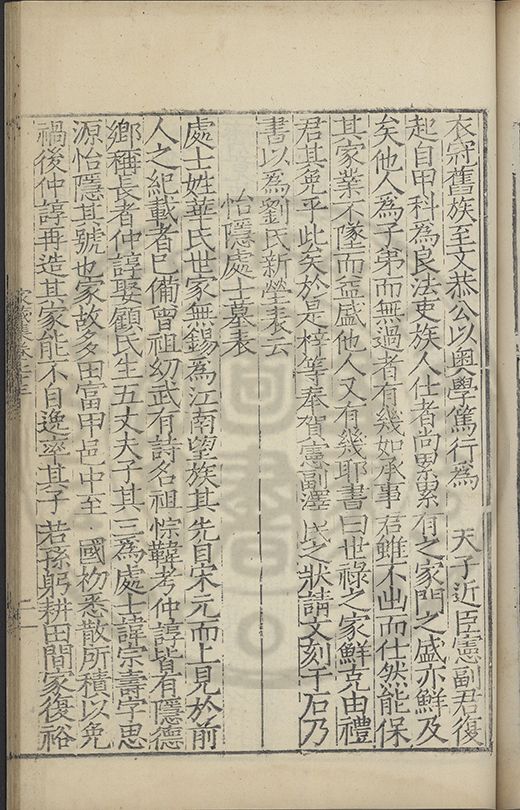 衣冠舊族至文恭公以奧學篤行為　天子近臣憲副君復
起自甲科為良法吏族人仕者尚累累有之家門之盛亦鮮及
矣他人為子弟而無過者有幾如承事　君雖不出而仕然能保
其家業不墜而益盛他人又有幾耶書曰世祿之家鮮克由禮
君其免乎此矣於是梓等奉賀憲副澤民之狀請文刻于石乃
書以為劉氏新塋表云
怡隱處士墓表
處士姓華氏世家無錫為江南望族其先自宋元而上見於前
人之紀載者已備曾祖幼武有詩名祖悰韡考仲諄皆有隱德
鄉稱長者仲諄娶顧氏生五丈夫子其三為處士諱宗壽字思
源怡隱其號也家故多田富甲邑中至　國初悉散所積以免
禍後仲諄再造其家能不自逸率其子若孫躬耕田間家復裕